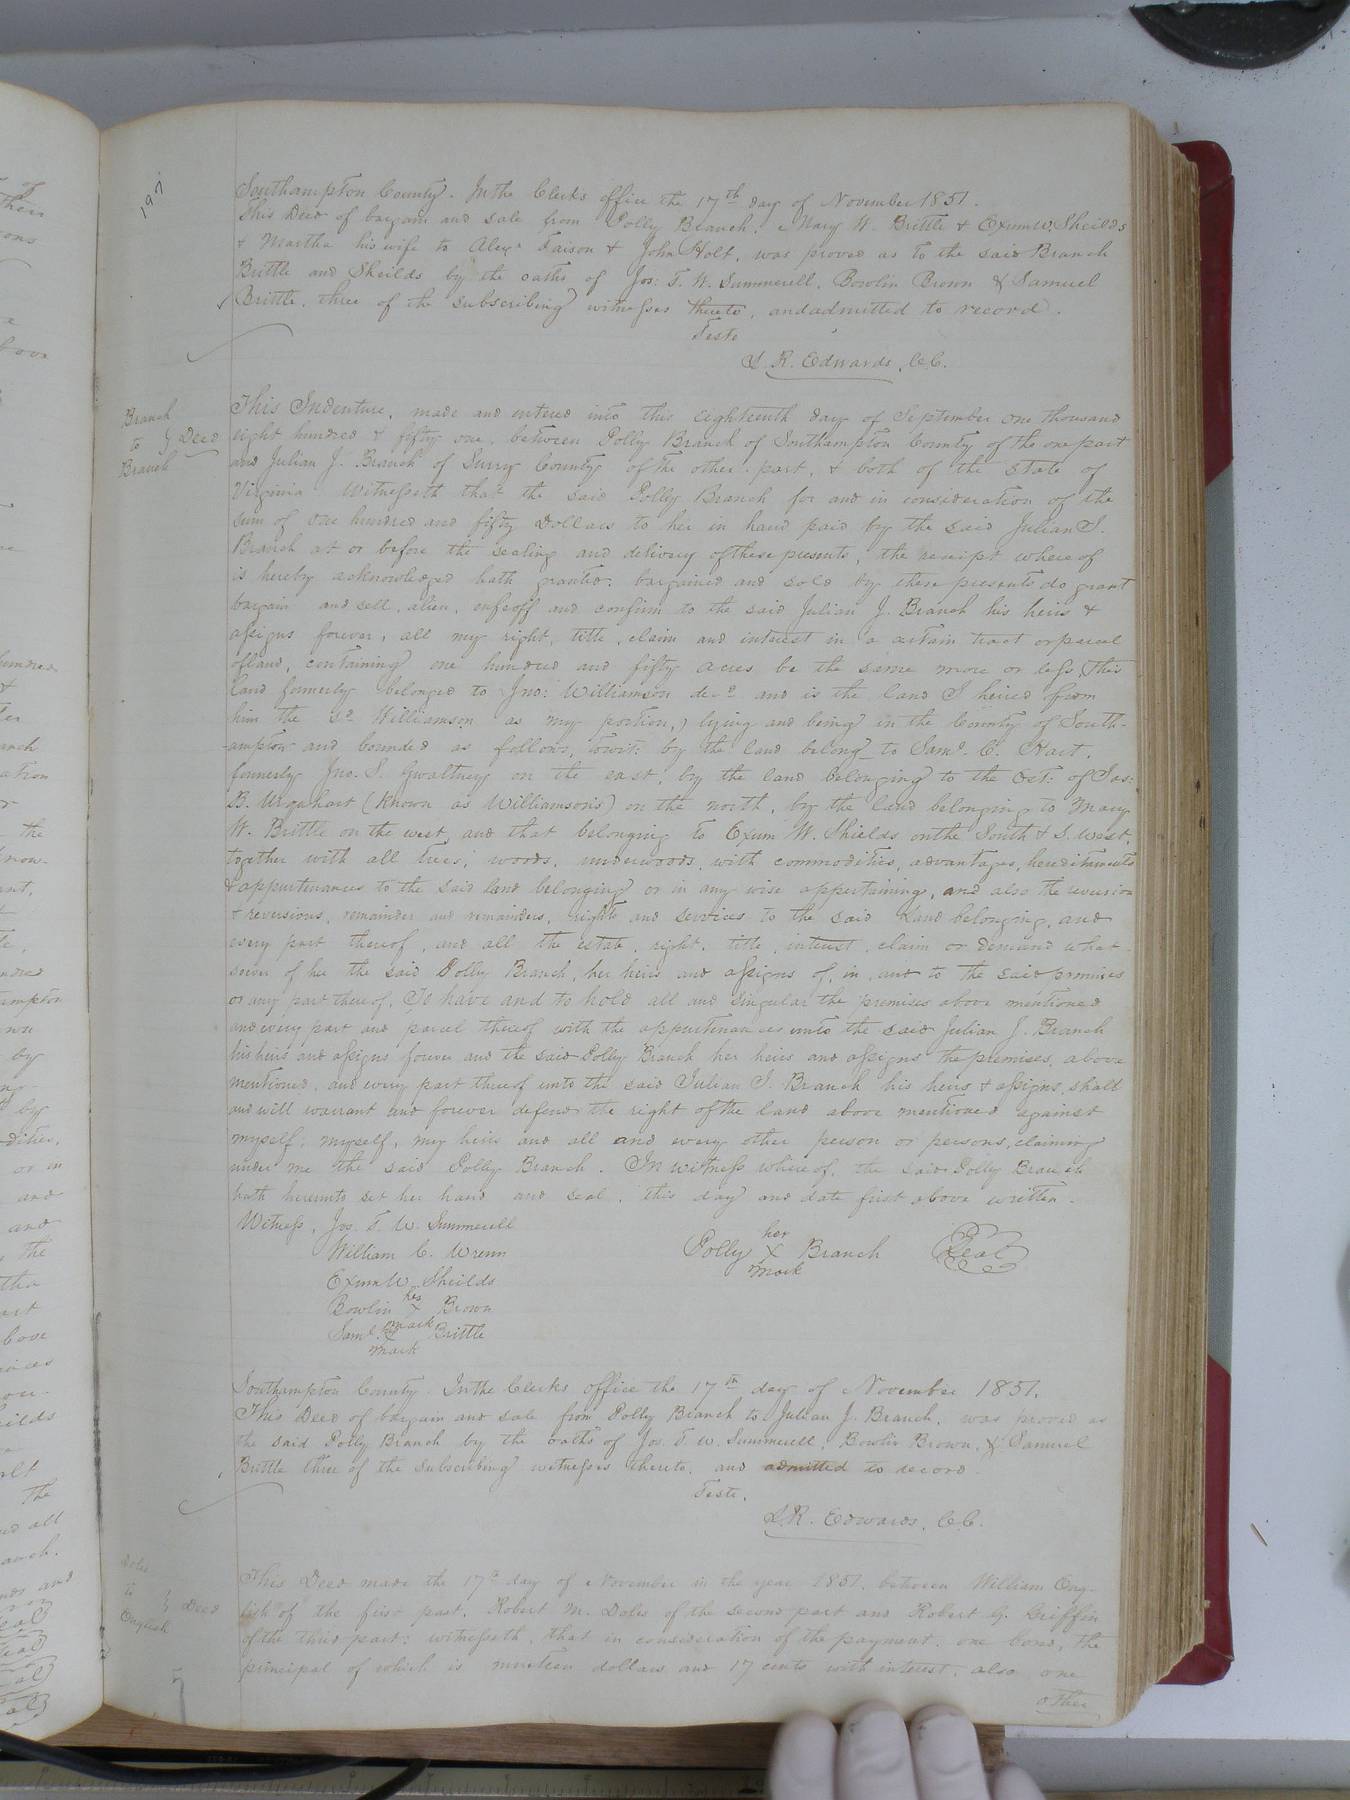 197
Southampton County. In the Clerks office the 17th day of November 1851.
This Deed of bargain and sale from Polly Branch, Mary W. Brittle & Exum W. Sheilds
& Martha his wife to Alexr Faison & John Holt, was proved as to the said Branch
Brittle and Sheilds by the oaths of Jos: T. W. Summerell, Bowlin Brown & Samuel
Brittle, three of the subscribing witnesses thereto, and admitted to record.
Teste
L. R. Edwards, C.C.
Branch
to } Deed
Branch
This Indenture, made and entered into this eighteenth day of September one thousand
eight hundred & fifty one, between Polly Branch of Southampton County of the one part
and Julian J. Branch of Surry County of the other part, & both of the State of
Virginia Witnesseth that the said Polly Branch for and in consideration of the
sum of one hundred and fifty Dollars to her in hand paid by the said Julian J.
Branch at or before the sealing and delivery of these presents, the receipt whereof
is hereby acknowledged hath granted, bargained and sold by these presents do grant
bargain and sell, alien, enfeoff and confirm to the said Julian J. Branch his heirs &
assigns forever, all my right, title, claim and interest in a certain tract or parcel
of land, containing one hundred and fifty acres be the same more or less, (this
land formerly belonged to Jno: Williamson decd and is the land I heired from
him the sd Williamson as my portion,) lying and being in the County of South-
ampton and bounded as follows, towit: by the land belong to Saml. C. Hart,
formerly Jno. S. Gwaltney on the east, by the land belonging to the Est: of Jas:
B. Urquhart (known as Williamson's) on the north, by the land belonging to Mary
W. Brittle on the west, and that belonging to Exum W. Shields on the South & S. West,
together with all trees, woods, underwoods, with commodities, advantages, hereditaments
& appurtenances to the said land belonging or in any wise appertaining, and also the reversion
& reversions, remainder and remainders, rights and services to the said Land belonging, and
every part thereof, and all the estate, right, title, interest, claim or demand what-
soever of her the said Polly Branch, her heirs and assigns of, in, and to the said premises
or any part thereof, To have and to hold all and singular the premises above mentioned
and every part and parcel thereof with the appurtenances unto the said Julian J. Branch
his heirs and assigns forever and the said Polly Branch her heirs and assigns the premises, above
mentioned, and every part thereof unto the said Julian J. Branch his heirs & assigns, shall
and will warrant and forever defend the right of the land above mentioned against
myself, myself, my heirs and all and every other person or persons, claiming
under me the said Polly Branch. In witness whereof, the said Polly Branch
hath hereunto set her hand and seal, this day and date first above written.
Witness, Jos. T. W. Summerell
William C. Wrenn
Exum W. Sheilds
Bowlin his x mark Brown
Saml. x mark Brittle
Polly her x mark Branch Seal
Southampton County. In the Clerks office the 17th day of November 1851.
This Deed of bargain and sale from Polly Branch to Julian J. Branch, was proved as
the said Polly Branch by the oaths of Jos. T. W. Summerell, Bowlin Brown, & Samuel
Brittle three of the subscribing witnesses thereto, and admitted to record
Teste,
L. R. Edwards, C.C.
Doles
to } Deed
English
This Deed made the 17th day of November in the year 1851, between William Eng-
lish of the first part, Robert M. Doles of the second part and Robert G. Griffin
of the third part: witnesseth, that in consideration of the payment, one bond, the
principal of which is nineteen dollars and 17 cents with interest, also one
other